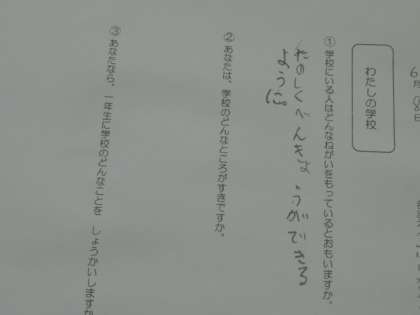 6月18日
わたしの学校
① 学校にいる人はどんなねがいをもっているとおもいますか。
たのしくべんきょうができる
ように。
② あなたは、学校のどんなところがすきですか。
③ あなたなら、一年生に学校のどんなことを しょうかいしますか